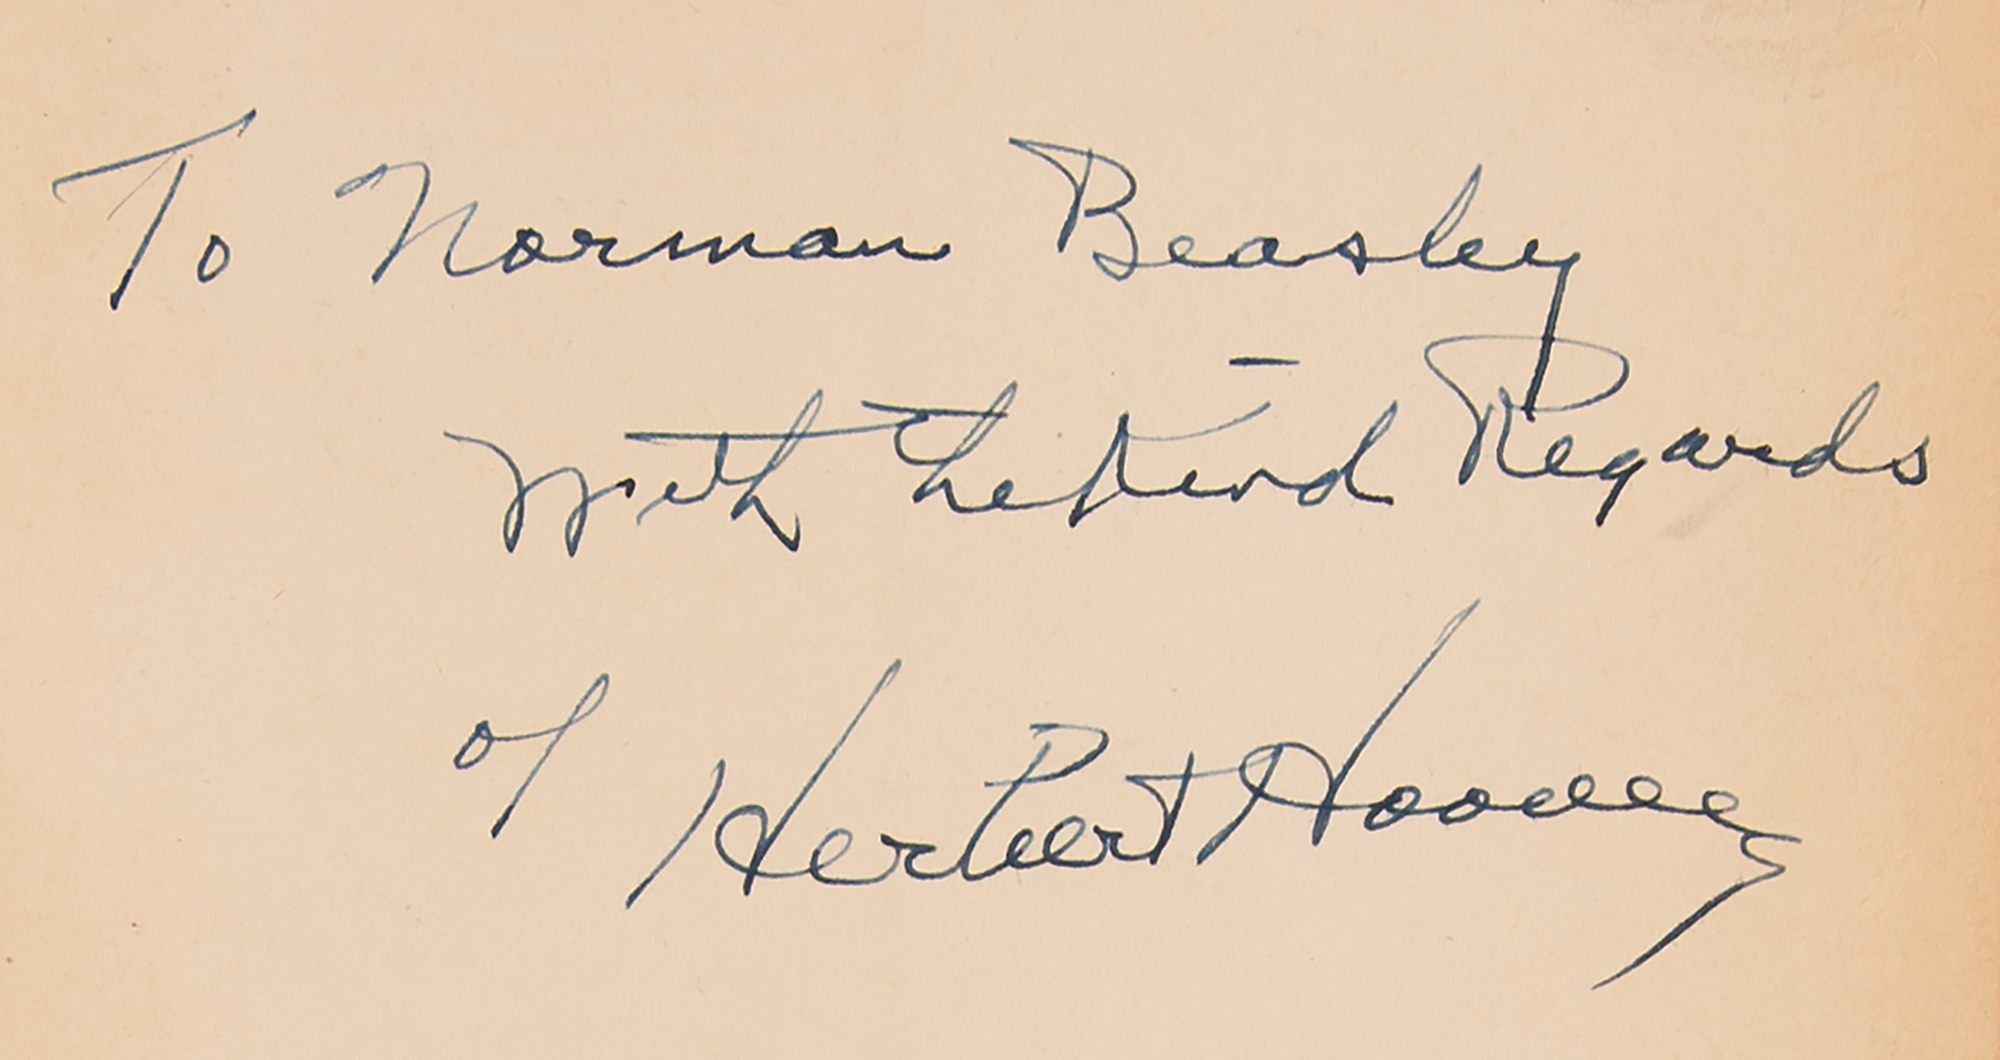 To Norman Beasley
With the Kind Regards
of
Herbert Hoover